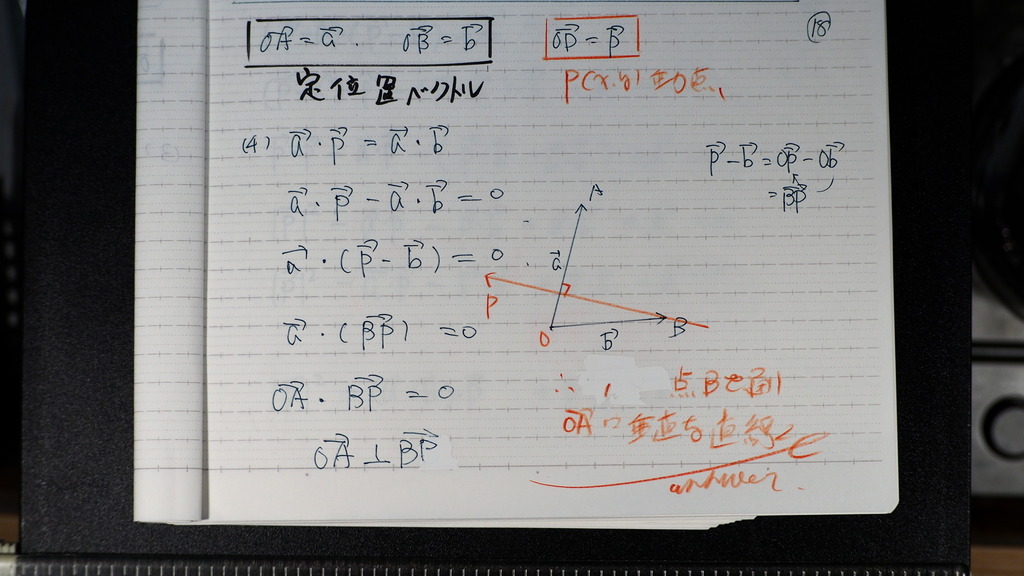 OA→ = a→. OB→ = b→ OP→ = P→ ⑱
定位置ベクトル P(x,y) 動点、
(4) a→・p→ = a→・b→
p→ - b→ = OP→ - Ob→
= BP→
a→・p→ - a→・b→ = 0
A
a→・(p→ - b→) = 0
a→
P
a→・(BP→) = 0
O
b→
B
OA→・BP→ = 0
∴ 点Bを通り
OA→に垂直な直線
OA→ ⊥ BP→
answer.